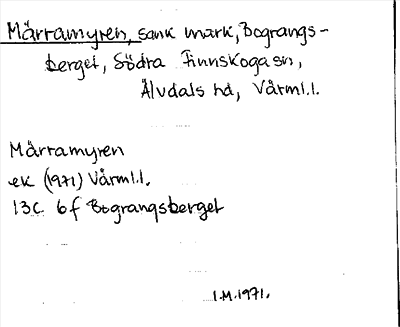 Märramyren, sank mark, Bograngs-
berget, Södra Finnskoga sn,
Älvdals hd, Värml.l.
Märramyren
ek (1971) Värml.l.
13C 6f Bograngsberget
I.M. 1971.